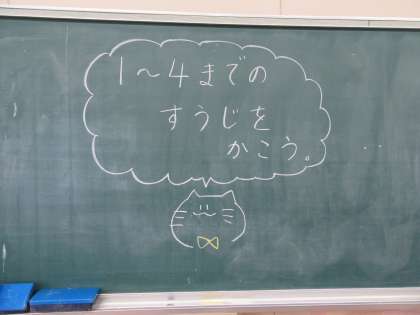 1～4までの
すうじを
かこう。